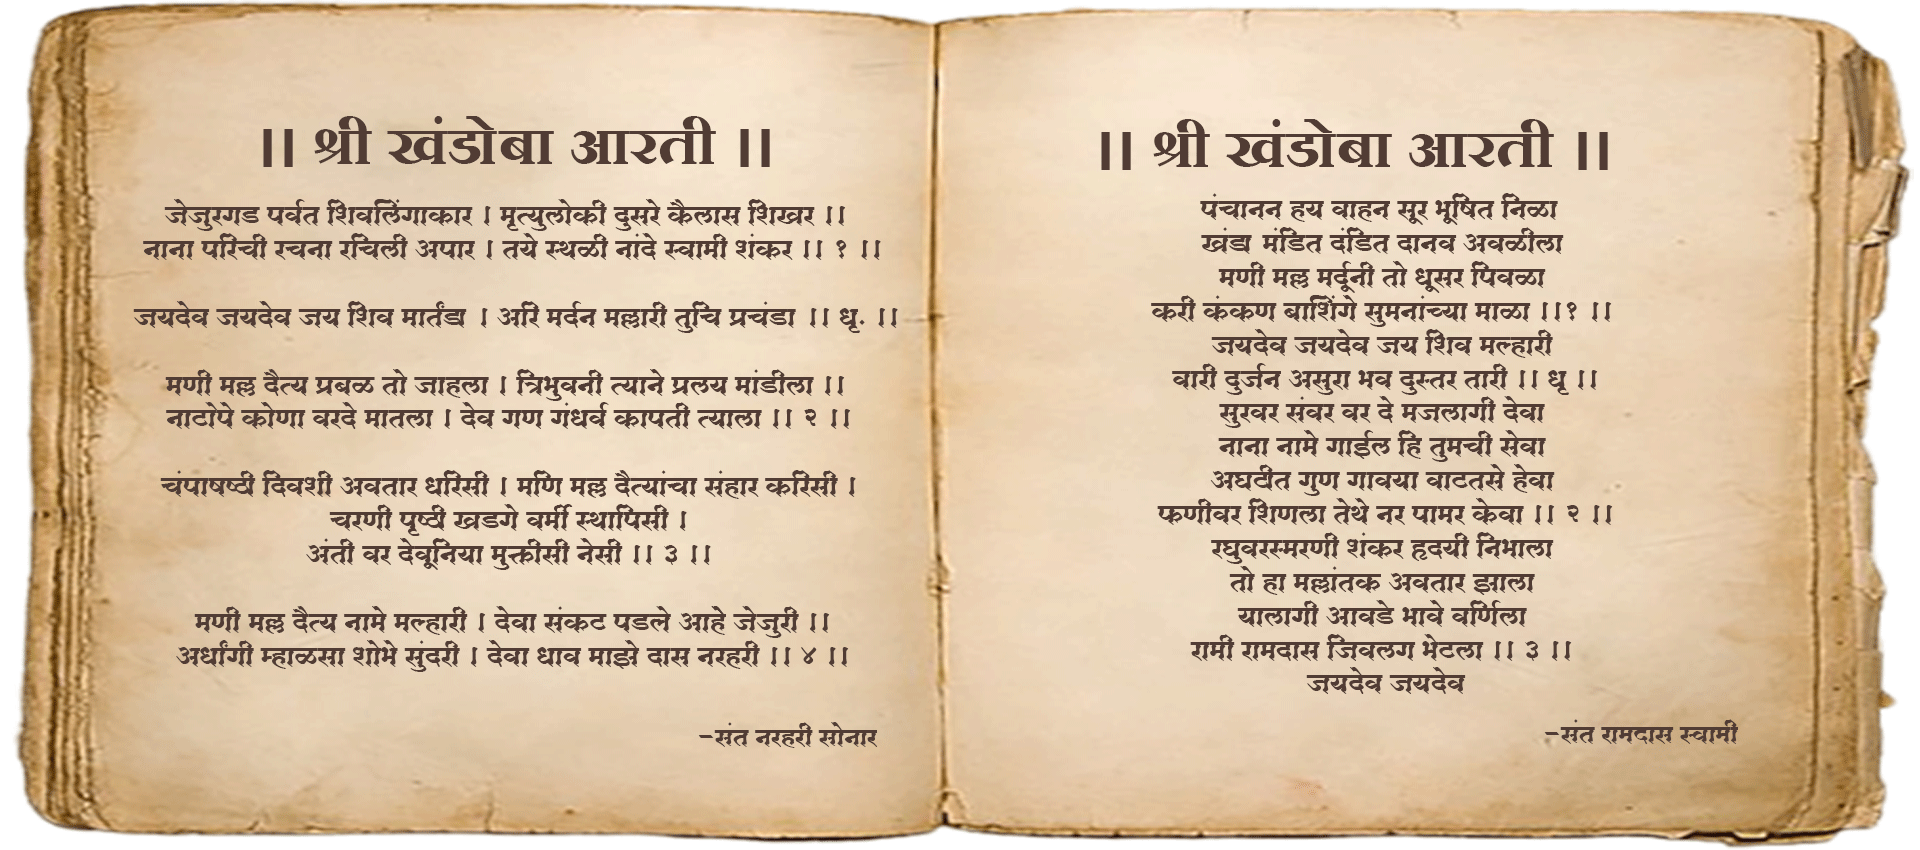 ।। श्री खंडोबा आरती ।।
जेजुरगड पर्वत शिवलिंगाकार । मृत्युलोकी दुसरे कैलास शिखर ।।
नाना परिची रचना रचिली अपार । तये स्थळी नांदे स्वामी शंकर ।। १ ।।
जयदेव जयदेव जय शिव मार्तंड्य । अरि मर्दन मल्लारी तुचि प्रचंडा ।। धृ. ।।
मणी मल्ल दैत्य प्रबळ तो जाहला । त्रिभुवनी त्याने प्रलय मांडीला ।।
नाटोपे कोणा वरदे मातला । देव गण गंधर्व कापती त्याला ।। २ ।।
चंपाषष्ठी दिवशी अवतार धरिसी । मणि मल्ल दैत्यांचा संहार करिसी ।
चरणी पृष्ठी खडगे वर्मी स्थापिसी ।
अंती वर देवूनिया मुक्तीसी नेसी ।। ३ ।।
मणी मल्ल दैत्य नामे मल्हारी । देवा संकट पडले आहे जेजुरी ।।
अर्धांगी म्हाळसा शोभे सुंदरी । देवा धाव माझे दास नरहरी ।। ४ ।।
-संत नरहरी सोनार
।। श्री खंडोबा आरती ।।
पंचानन हय वाहन सूर भूषित निळा
खंड्य मंडित दंडित दानव अवळीला
मणी मल्ल मर्दूनी तो धूसर पिवळा
करी कंकण बाशिंगे सुमनांच्या माळा ।।१ ।।
जयदेव जयदेव जय शिव मल्हारी
वारी दुर्जन असुरा भव दुस्तर तारी ।। धृ ।।
सुरवर संवर वर दे मजलागी देवा
नाना नामे गाईल हि तुमची सेवा
अघटीत गुण गावया वाटतसे हेवा
फणीवर शिणला तेथे नर पामर केवा ।। २ ।।
रघुवरस्मरणी शंकर हृदयी निभाला
तो हा मल्लांतक अवतार झाला
यालागी आवडे भावे वर्णिला
रामी रामदास जिवलग भेटला ।। ३ ।।
जयदेव जयदेव
-संत रामदास स्वामी